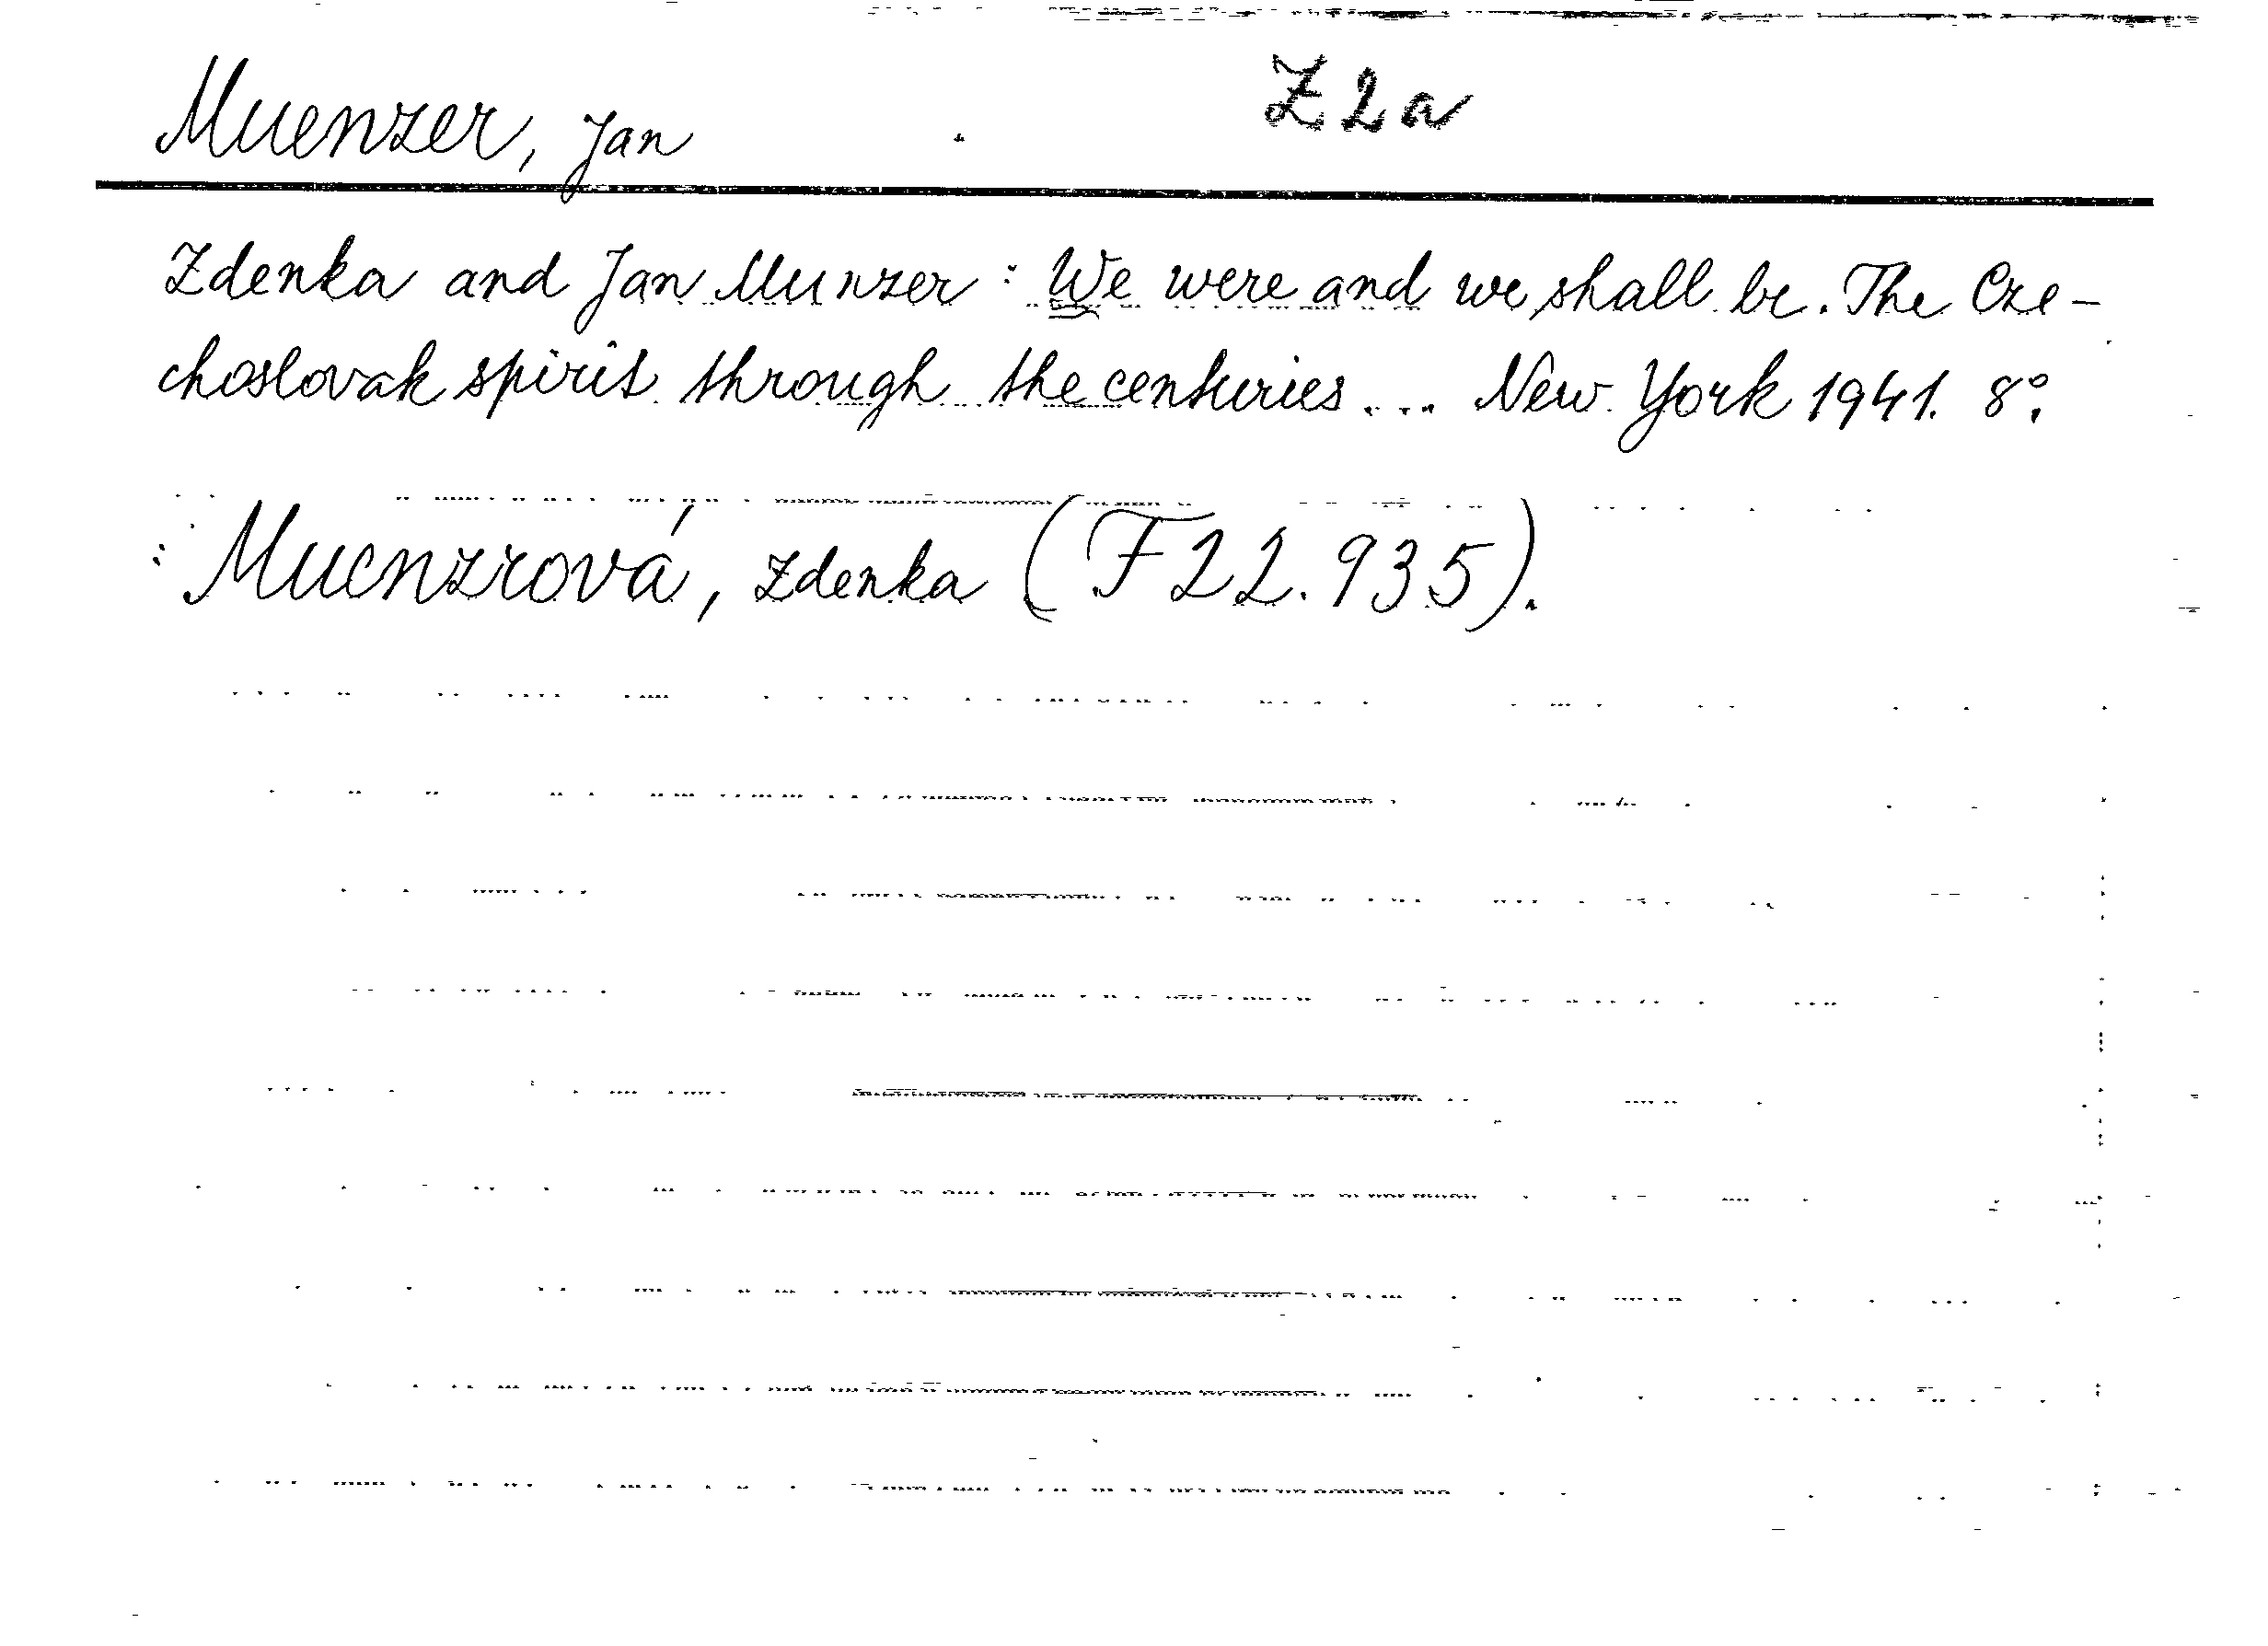 Muenzer, Jan Z2a
Zdenka and Jan Munzer: We were and we shall be. The Cze-
choslovak spirit through the centuries... New York 1941. 8°.
: Muenzrová, Zdenka (F 22.935).